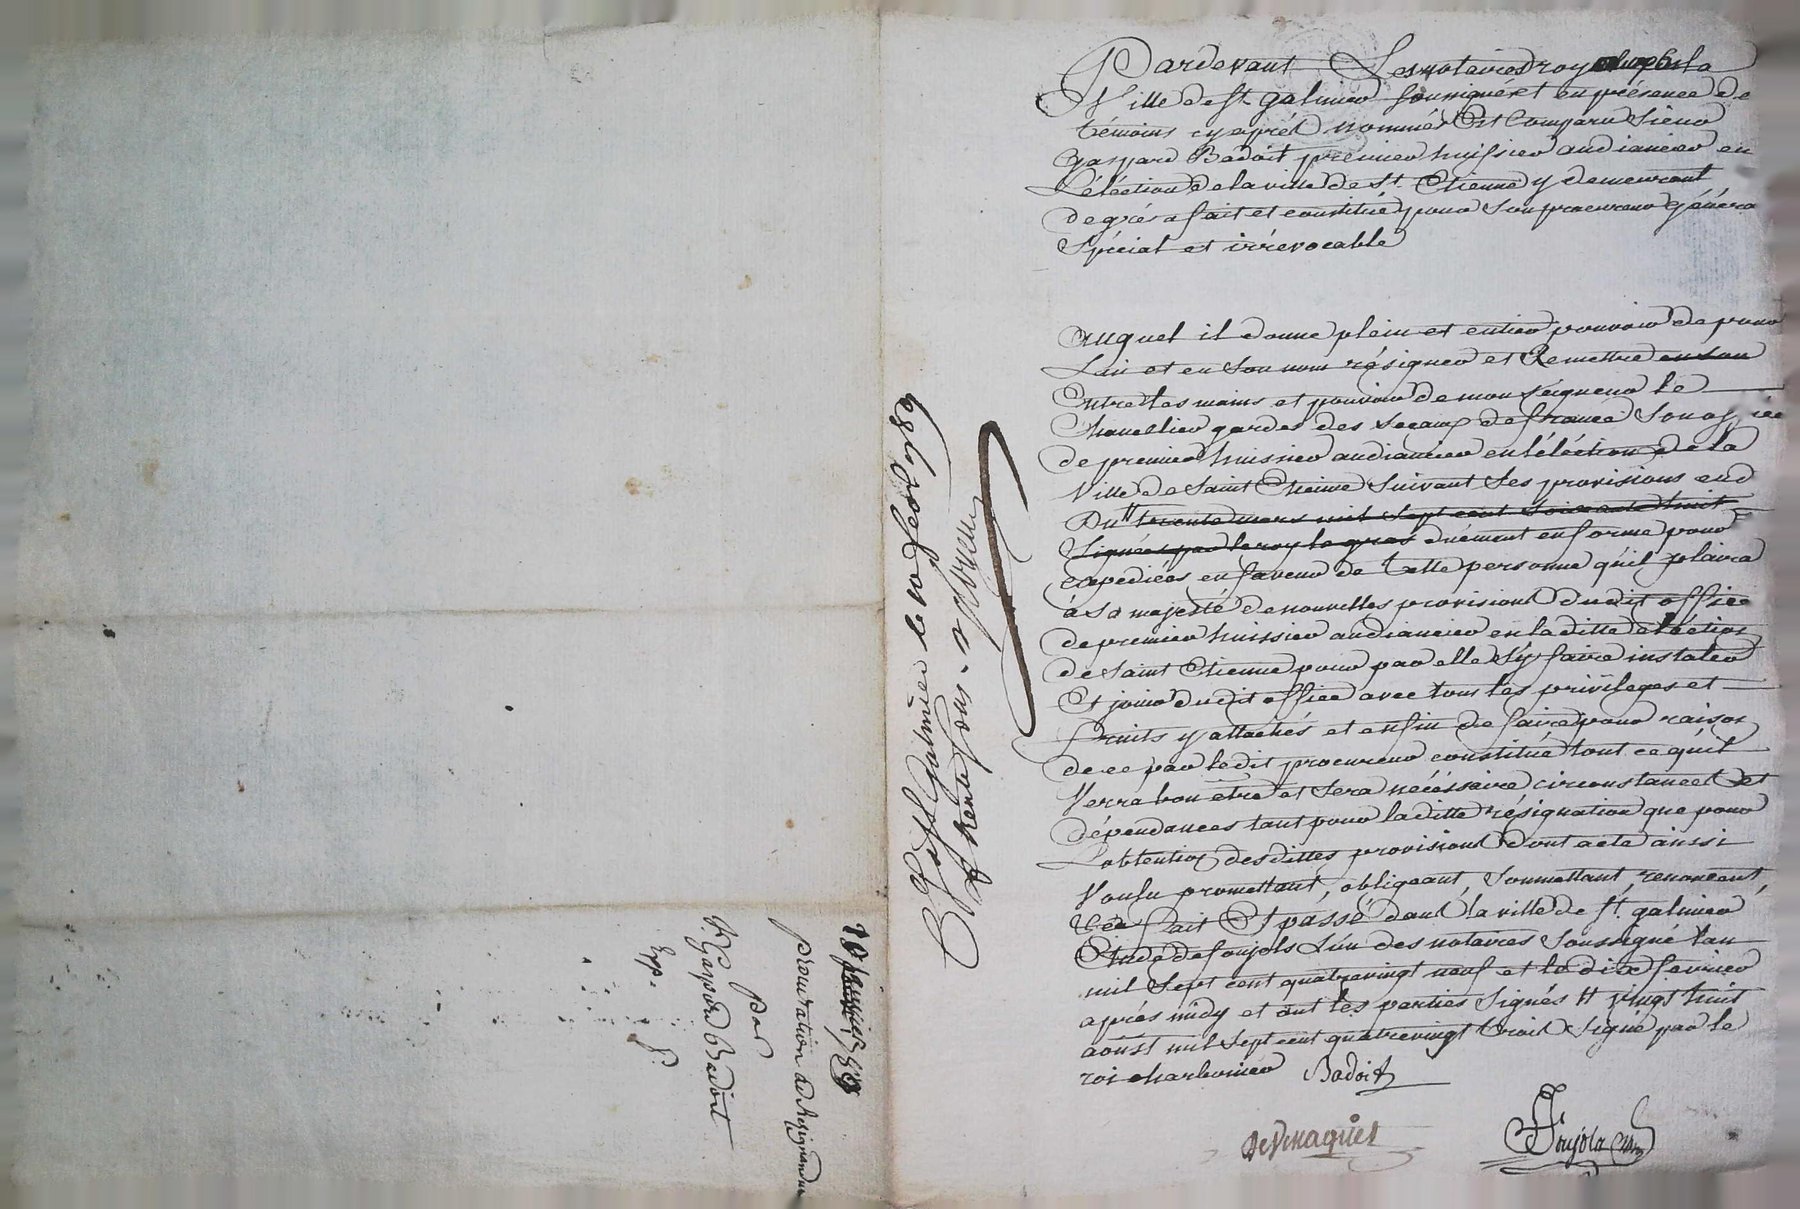 Pardevant Les notaires royaux pour la
Ville de St galmier soussignés et en présence de
témoins cy après nommés Est Comparu Sieur
Gaspard Badoit premier huissier audiancier en
L'élection de la ville de St. Etienne y demeurant
de gré a fait et constitué pour son procureur généra
Spécial et irrévocable
auquel il donne plein et entier pouvoir de pour
Lui et en son nom résigner et Remettre en son
Entre les mains et pouvoir de monseigneur le
Chancellier gardes des sceaux de france son office
de premier huissier audiancier en l'élection de la
Ville de Saint Etienne suivant ses provisions en d
Du # trente mars mil sept cent soixante huit
Signées par le roy le gras duëment en forme pour
expediées en faveur de telle personne qu'il plaira
à sa majesté de nouvelles provisions dudit office
de premier huissier audiancier en la ditte election
de saint Etienne pour par elle s'y faire instaler
Et jouir dudit office avec tous les privileges et
fruits y attachés et enfin de faire pour raison
de ce par ledit procureur constitué tout ce qu'il
Verra bon etre et sera nécéssaire circonstances et
dépendances tant pour la ditte résignation que pour
L'obtention desdittes provisions dont acte ainsi
Voulu promettant, obligeant, soumettant, renonceant,
fait Et passé dans la ville de St. galmier
Etude de foujols L'un des notaires soussigné l'an
mil sept cent quatrevingt neuf et le dix fevrier
après midy et ont les parties signés # vingt huit
aoust mil sept cent quatrevingt trois signé par le
roi charbonier Badoit
devinaques foujols
St Galmier le 10 feor 1789
trente sous
10 janvier 89
procuration ad Resignandum
par
Sr Gaspard Badoit
Exp.